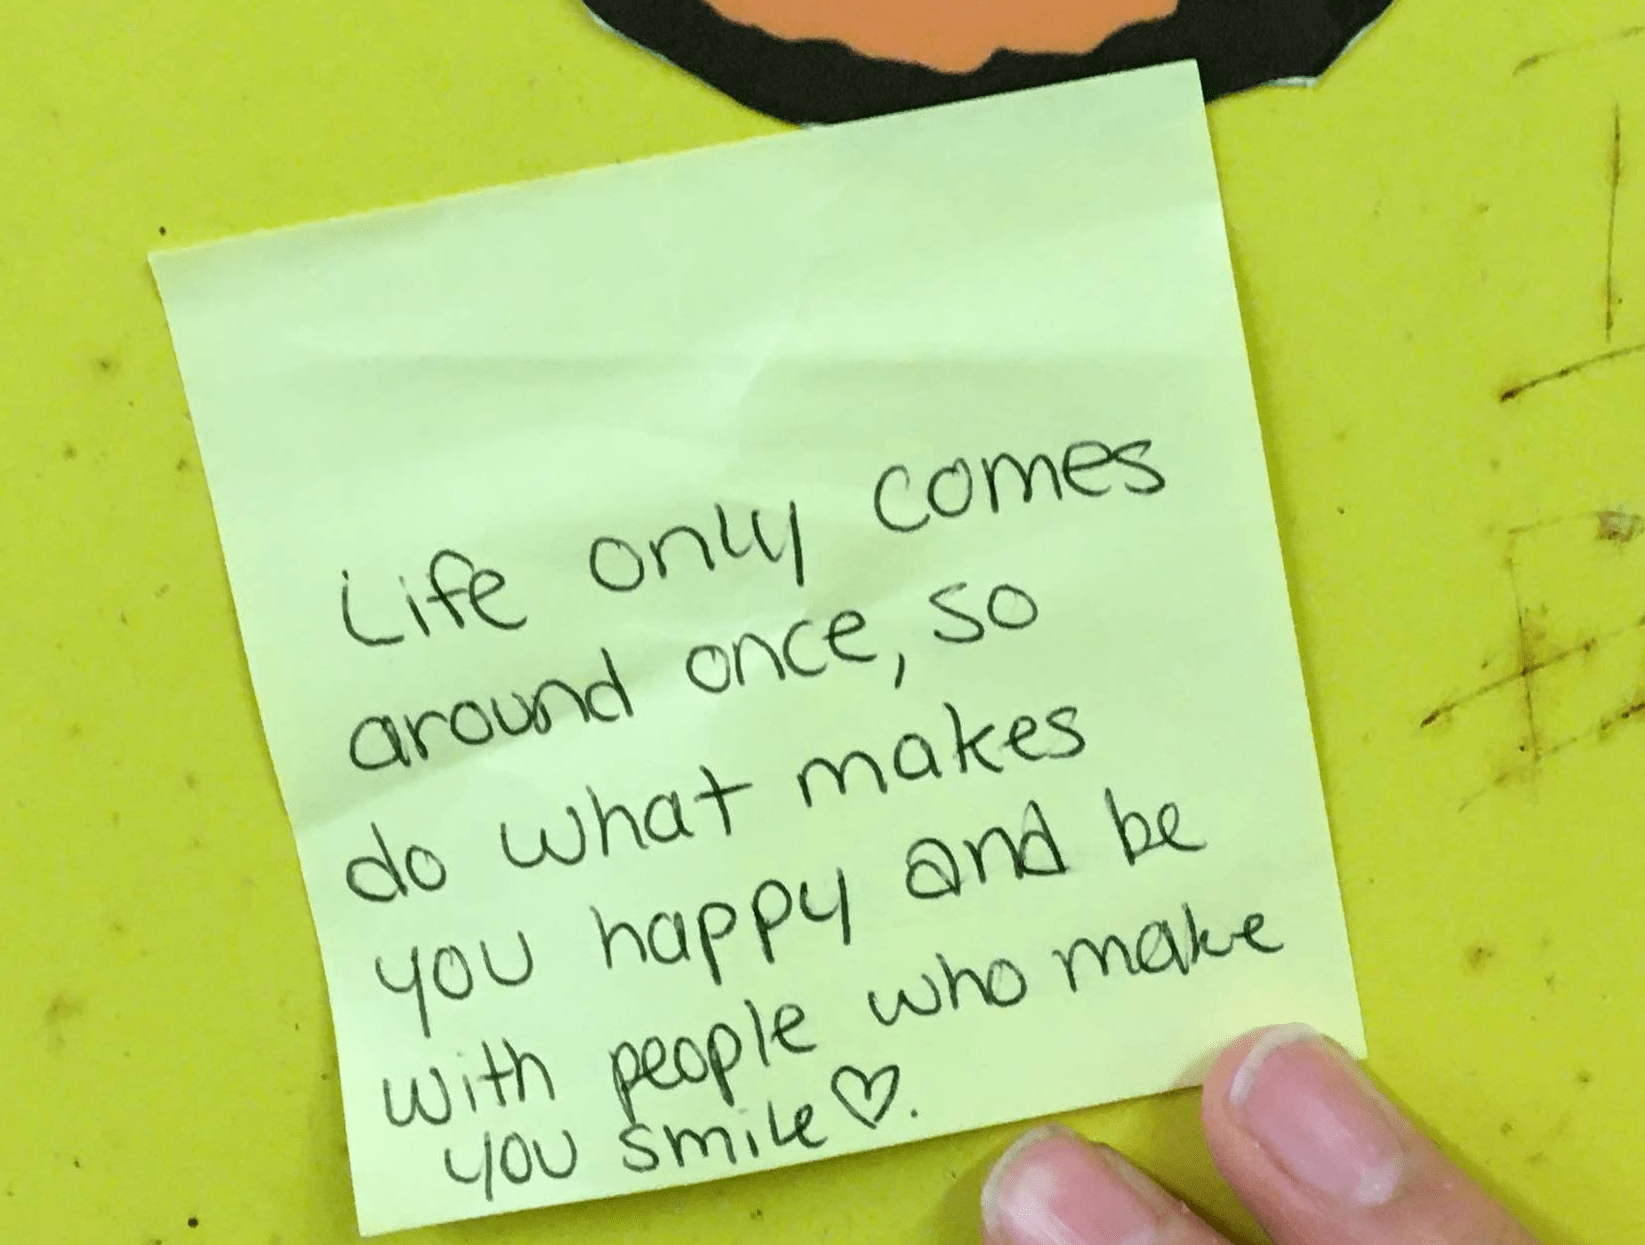 Life only comes
around once, so
do what makes
you happy and be
with people who make
you smile ♡.